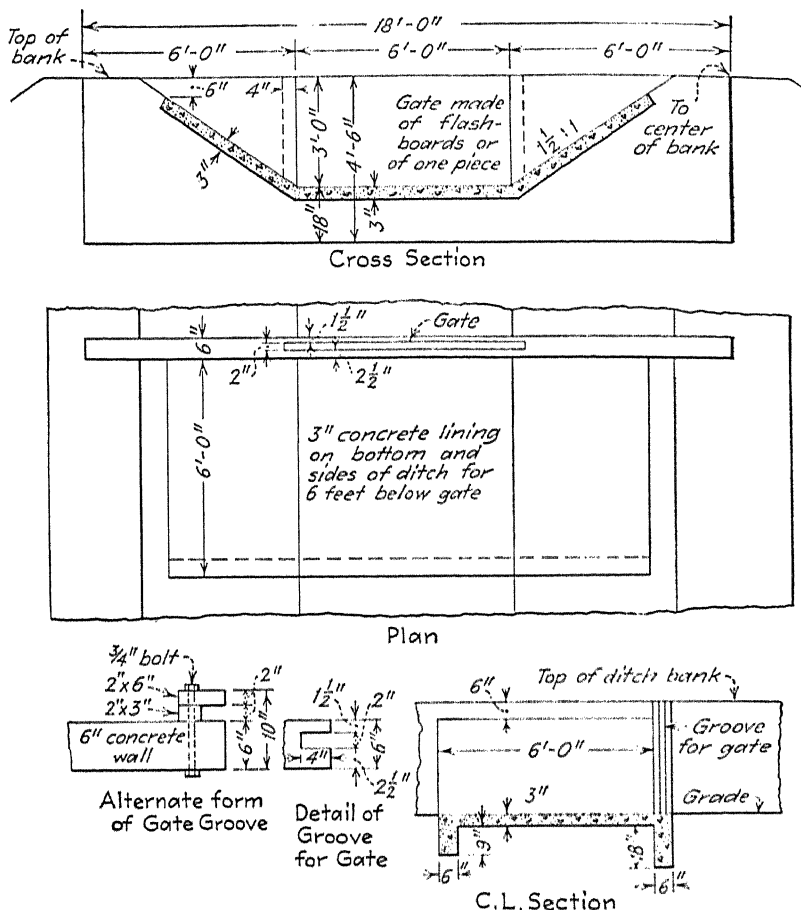 18'-0"
Top of
bank
6'-0"
6'-0"
6'-0"
6"
4"
3'-0"
4'-6"
Gate made
of flash-
boards or
of one piece
1½:1
To
center
of bank
3"
18"
3"
Cross Section
1½"
Gate
6"
2"
2½"
6'-0"
3" concrete lining
on bottom and
sides of ditch for
6 feet below gate
Plan
¾" bolt
2"x6"
2"x3"
6" concrete
wall
2"
6"
10"
Alternate form
of Gate Groove
1½"
2"
6"
4"
2½"
Detail of
Groove
for Gate
Top of ditch bank
6"
6'-0"
Groove
for gate
3"
Grade
9"
18"
6"
6"
C.L. Section